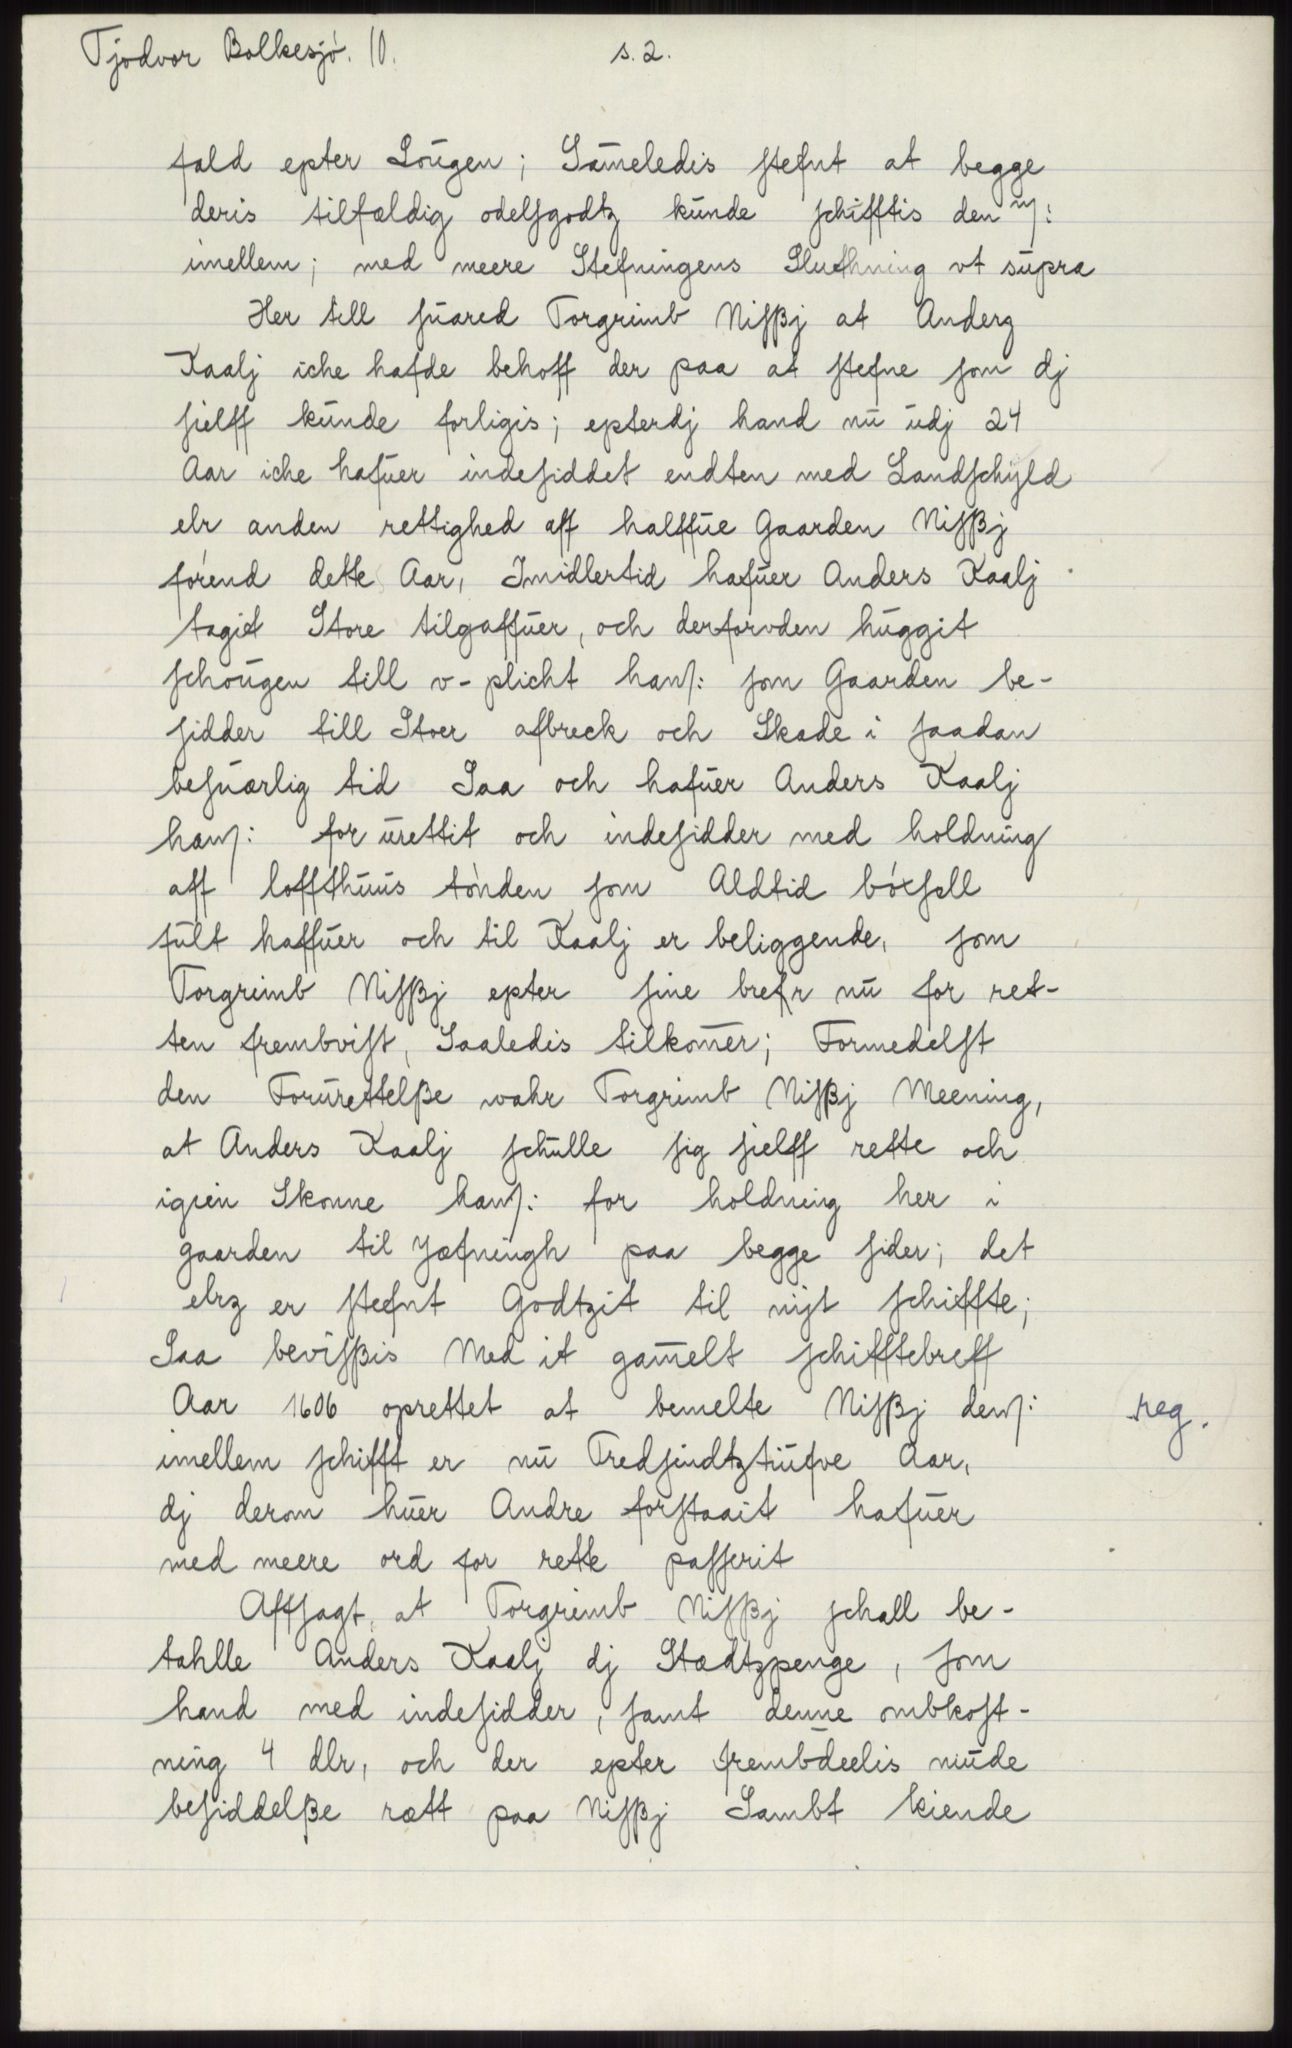 Tjodvor Bolkesjó. 10. s. 2.
fald epter Lougen; Sam̄eledis stefnt at begge
deris tilfældig odelsgodtz kunde schifftis den m/:
imellem; med meere Stefningens Sluthning vt supra
Her till suared Torgrimb Nisßj at Anderz
Kaalj iche hafde behoff der paa at stefne som dj
sielff kunde forligis; epterdj hand nu udj 24
Aar iche hafuer indesiddet endten med Landschÿld
elr anden rettighed aff halffue Gaarden Nisßj
forend dette Aar, Imidlertid hafuer Anders Kaalj
tagit Store tilgaffuer, och derforvden huggit
schougen till v-plicht ham/: som Gaarden be-
sidder till Stoer afbreck och Skade i saadan
besuærlig tid Saa och hafuer Anders Kaalj
ham/: for urettit och indesidder med holdning
aff loffthuus tónden som Aldtid bóxsell
fult haffuer och til Kaalj er beliggende, som
Torgrimb Nisßj epter sine brefr nu for ret-
ten frembvist, Saaledis tilkom̄er; Formedelst
den Forurettelße wahr Torgrimb Nisßj Meening,
at Anders Kaalj schulle sig sielff rette och
igien Skonne ham/: for holdning her i
gaarden til jæfningh paa begge sider; det
elrz er stefnt Godtzit til nijt schiffte;
Saa bevisßis Med it gam̄elt schifftebreff
Aar 1606 oprettet at bemelte Nisßj dem/: reg.
imellem schifft er nu Tredsindtztiufve Aar,
dj derom huer Andre forstaait hafuer
med meere ord for rette passerit
Affsagt, at Torgrimb Nisßj schall be-
tahlle Anders Kaalj dj Stædtzpenge, som
hand med indesidder, samt denne ombkost-
ning 4 dlr, och der epter frembdeelis niude
besiddelße rætt paa Nisßj Sambt kiende